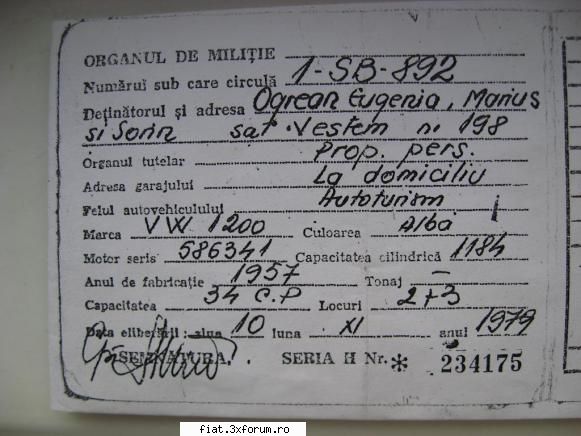 ORGANUL DE MILIȚIE
Numărul sub care circulă 1-SB-892
Deținătorul și adresa Ogrean Eugenia, Marius
si Sorin sat. Vestem n. 198
Organul tutelar Prop. pers.
Adresa garajului La domiciliu
Felul autovehiculului Autoturism
Marca VW 1200 Culoarea Alba
Motor seria 586341 Capacitatea cilindrică 1184
Anul de fabricație 1957 Tonaj –
Capacitatea 34 C.P Locuri 2+3
Data eliberării: ziua 10 luna XI anul 1979
SEMNĂTURA, SERIA H Nr. * 234175
fiat.3xforum.ro